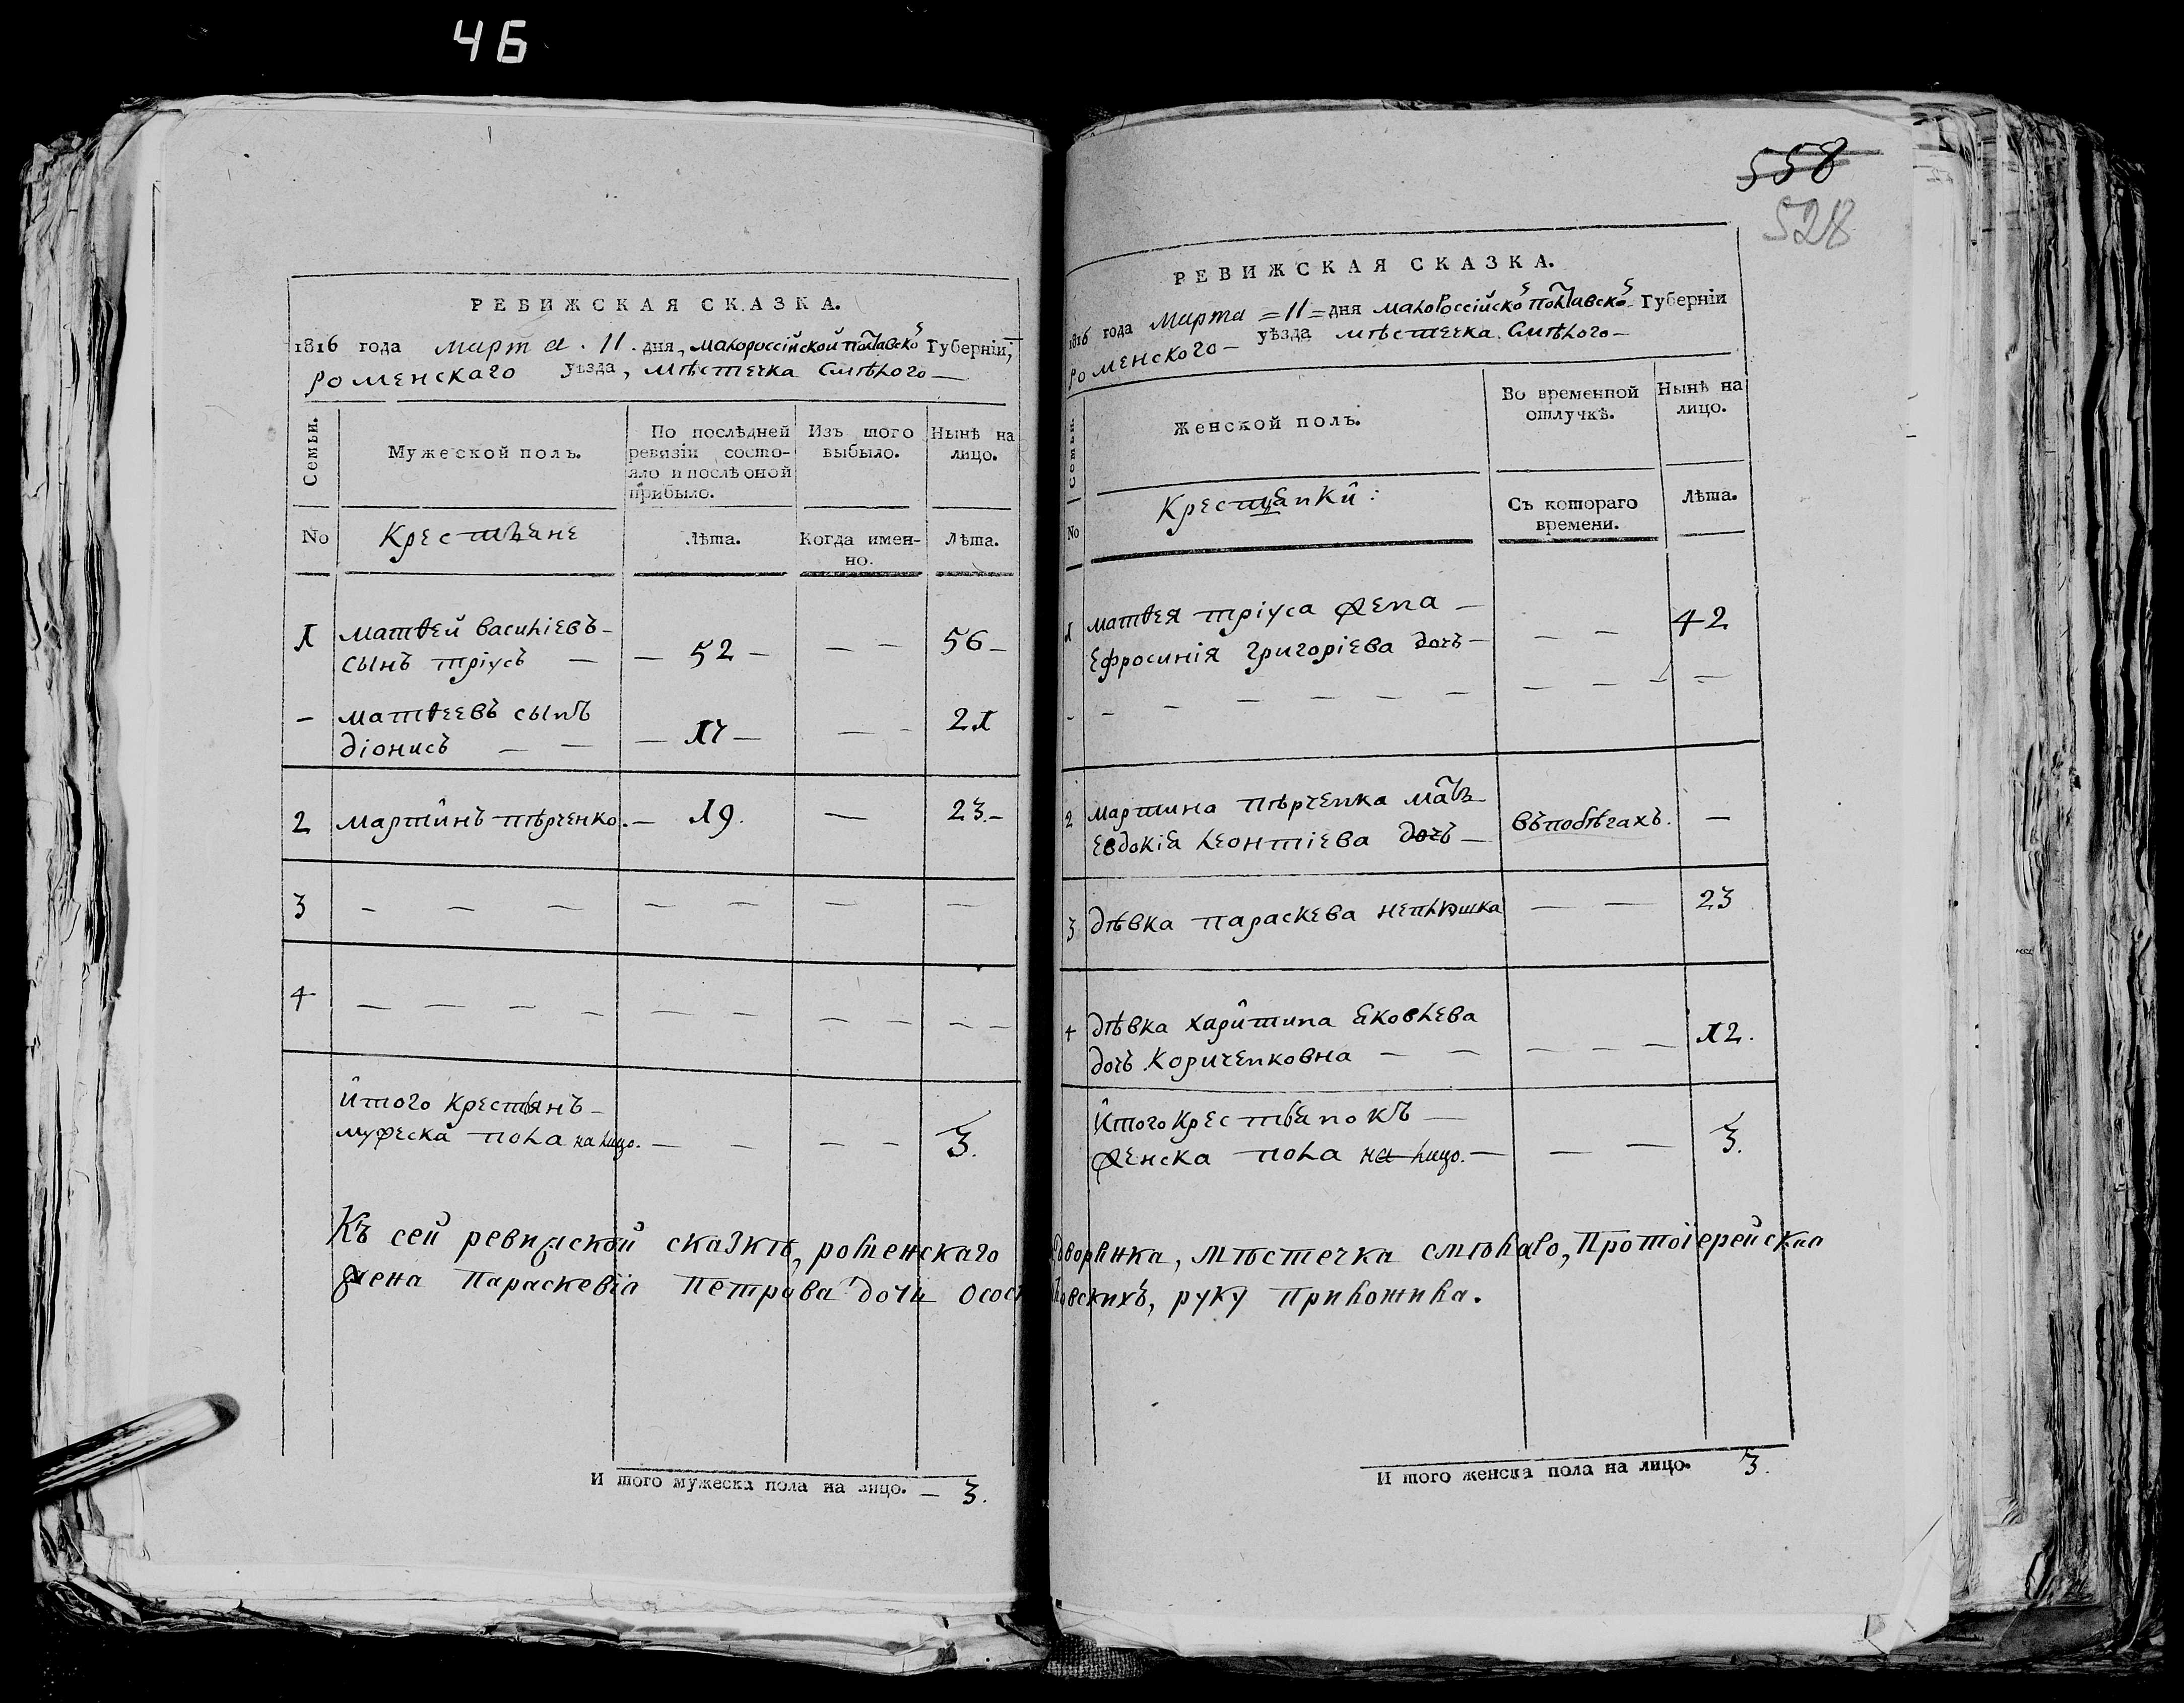 46
РЕВИЖСКАЯ СКАЗКА.
1816 года Марта . 11 . дня, малороссійской полтавской Губерніи,
роменскаго уѣзда, мѣстечка Смѣлого —
Семьи.
Мужеской полъ.
По послѣдней ревизіи состояло и послѣ оной прибыло.
Изъ того выбыло.
Нынѣ на лицо.
No
Крестьяне
Лѣта.
Когда именно.
Лѣта.
1 матвей василіевъ — сынъ тріусъ — — 52 — — — 56 —
— матвеевъ сынъ діонисъ — — — 17 — — - 21
2 мартинъ пѣрченко. — 19. — 23. —
3 — — — — — — — —
4 — — — — — — — — — —
Итого крестьянъ —
мужеска пола на лицо. — — — — 3.
558
528
РЕВИЖСКАЯ СКАЗКА.
1816 года Марта = 11 = дня малороссійской полтавской Губерніи
роменского — уѣзда мѣстечка Смѣлого —
Семьи.
Женской полъ.
Во временной отлучкѣ.
Нынѣ на лицо.
No
Крестьянки:
Съ котораго времени.
Лѣта.
1 матвея тріуса жена —
ефросинія григоріева дочъ — — — 42
- — — — — — — — — — —
2 мартина пѣрченка мать —
евдокія леонтіева дочъ — въ побѣгахъ. —
3 дѣвка параскева неплюшка — — 23
4 дѣвка харитина яковлева
дочъ Кориченковна — — — — — 12.
Итого крестьянокъ —
женска пола на лицо. — — — 3.
Къ сей ревижской сказкѣ, роменскаго дворянка, мѣстечка смѣлаго, Протоіерейская
жена Параскевія Петрова дочь Осостовскихъ, руку приложила.
И того мужеска пола на лицо. — 3.
И того женска пола на лицо. 3.